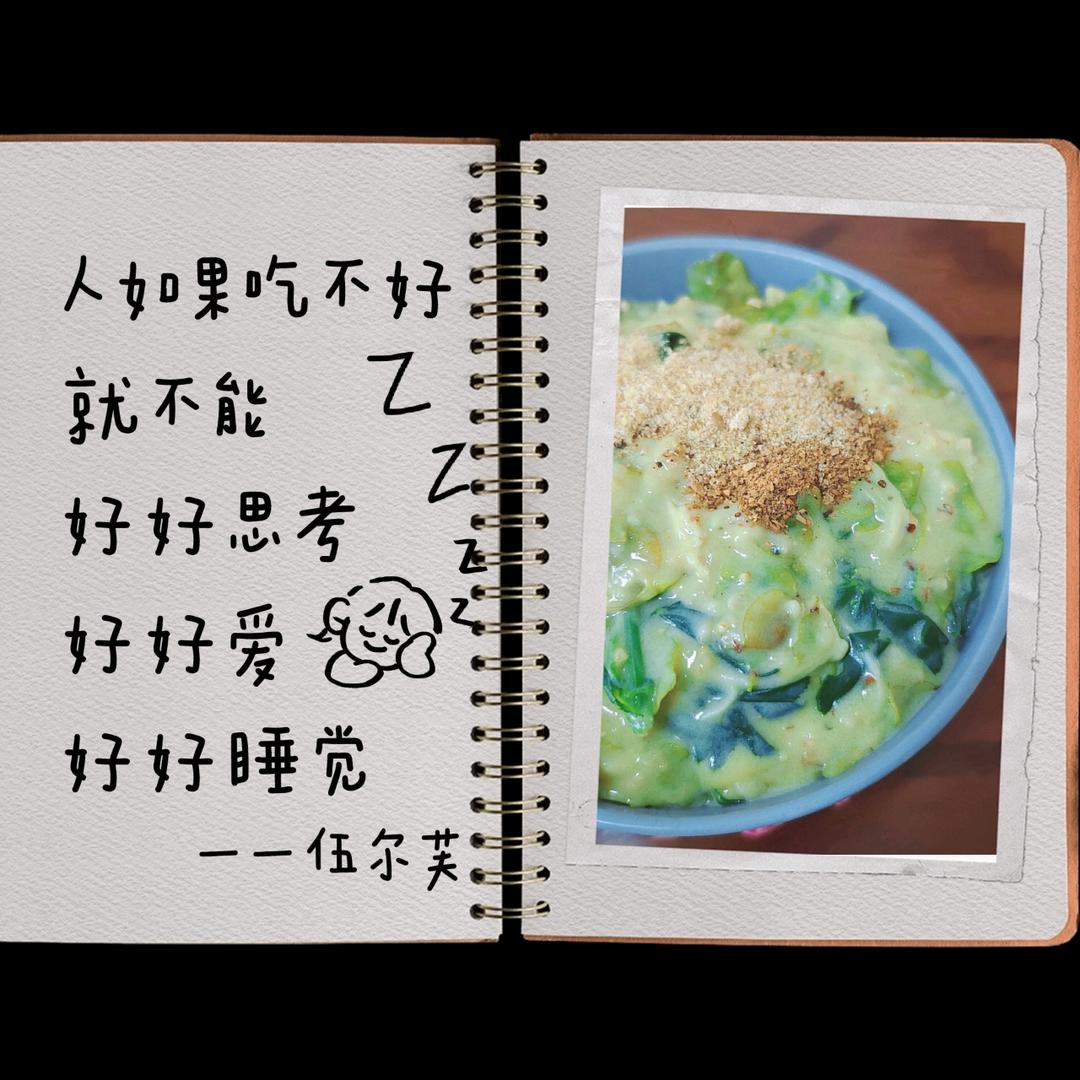 人如果吃不好
就不能
好好思考
好好爱
好好睡觉
——伍尔芙
Z
Z
Z
Z